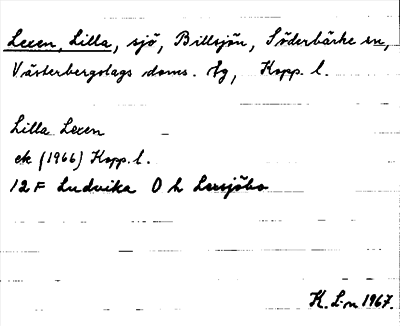 Lexen, Lilla, sjö, Billsjön, Söderbärke sn,
Västerbergslags doms. hg, Kopp. l.
Lilla Lexen
ek (1966) Kopp. l.
12 F Ludvika O h Lersjöbo
K. L-n 1967.